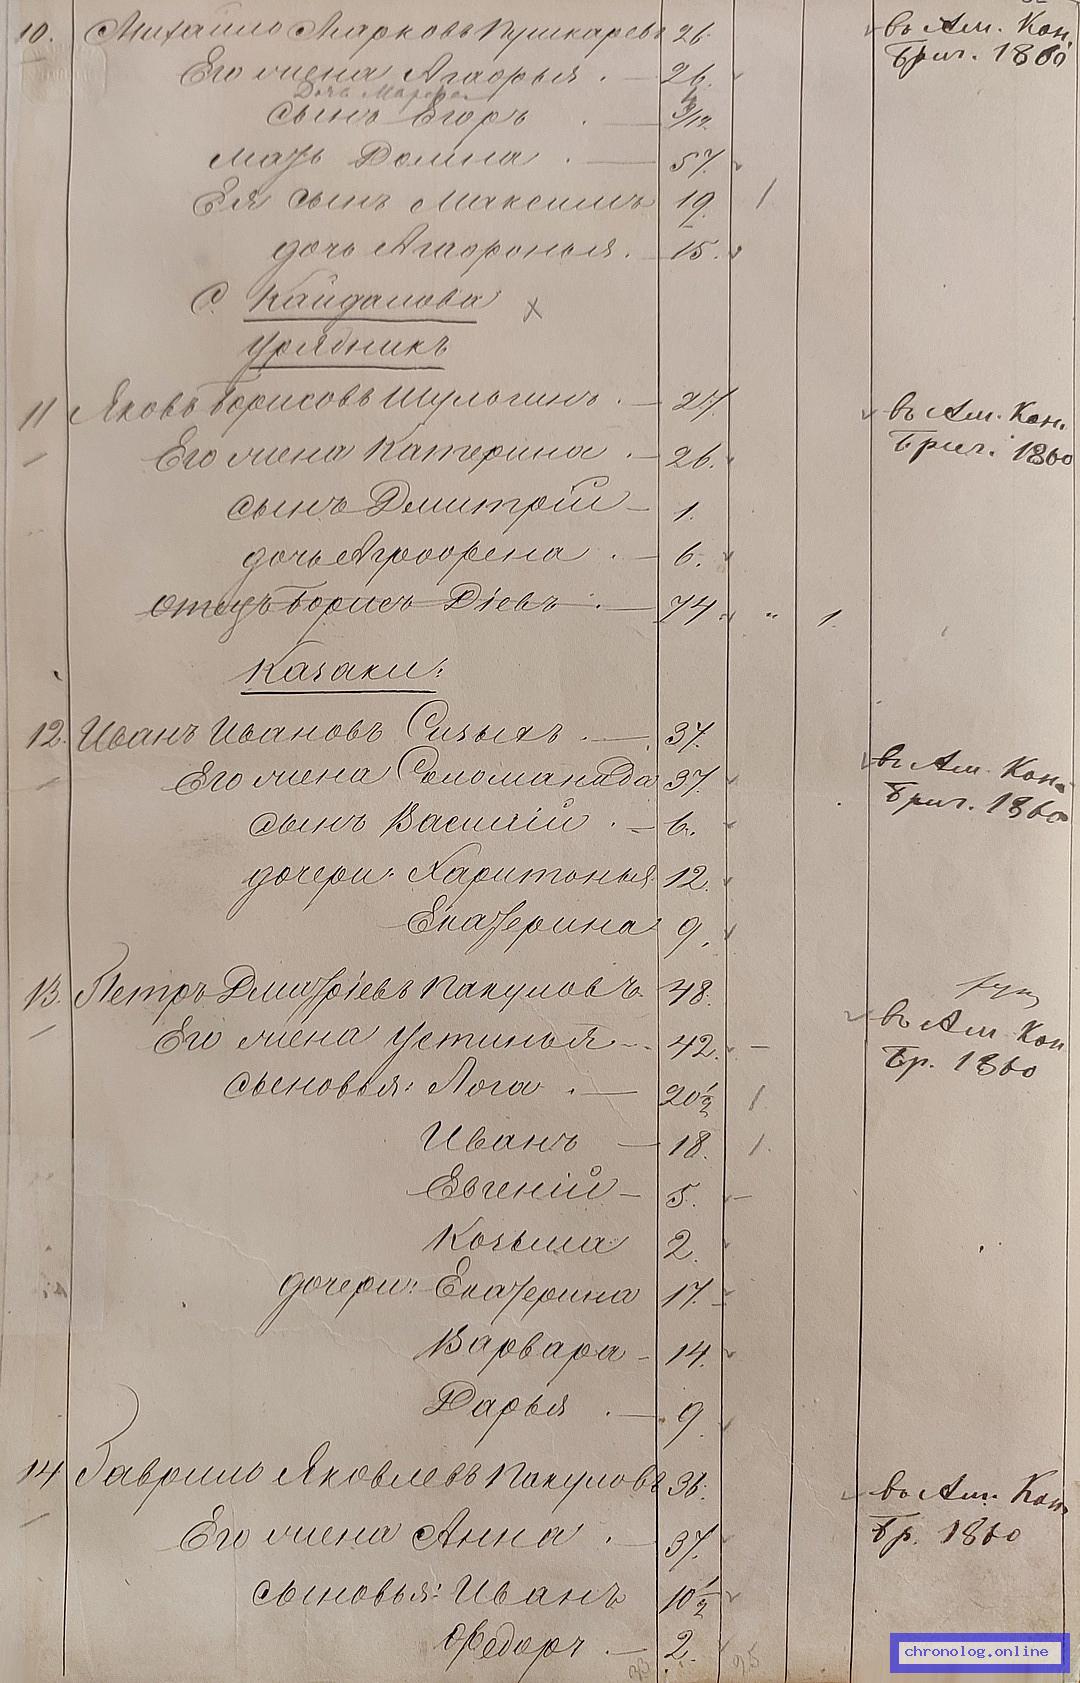 10. Михайло Марковъ Пушкаревъ 26. въ Ам. Кон.
Бриг. 1860
Его жена Агафья. — 26.
Дочь Марфа
сынъ Егоръ . — 3/12.
мать Домна . — 57.
Ея сынъ Максимъ 19. 1
дочь Агафонья. — 15.
С. Кайдалова х
Урядникъ
11 Яковъ Борисовъ Шульгинъ. — 27. въ Ам. Кон.
Его жена Катерина . — 26. Бриг. 1860
сынъ Дмитрій — 1.
дочь Агрофена . — 6.
отецъ Борисъ Діевъ . — 74. " 1.
Казаки:
12. Иванъ Ивановъ Сизыхъ . — 37.
Его жена Соломанида 37. въ Ам. Кон.
Бриг. 1860
сынъ Василій . — 6.
дочери: Харитонья 12.
Екатерина 9.
13. Петръ Дмитріевъ Пакуловъ 48.
Его жена Устинья — 42. — въ Ам. Кон
Бр. 1860
сыновья: Лога . — 20 1/2 1
Иванъ — 18. 1.
Евгеній — 5. —
Козьма 2.
дочери: Екатерина 17.
Варвара — 14.
Дарья . — 9.
14 Гаврило Яковлевъ Пакуловъ 36. въ Ам. Кон.
Его жена Анна . — 37. Бр. 1860
сыновья: Иванъ 10 1/2
Федоръ . — 2.
33 25
chronolog.online